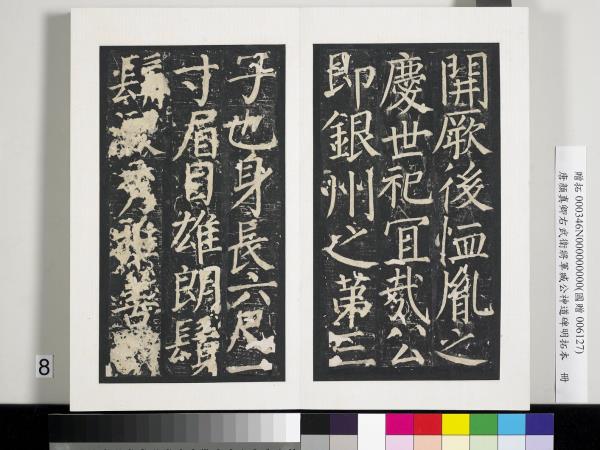 開厥後恤胤之
慶世祀宜哉公
即銀州之第三
子也身長六尺一
寸眉目雄朗髭
鬍
贈拓 000346N000000000(國贈 006127)
唐顏真卿右武衛將軍臧公神道碑明拓本 冊
8